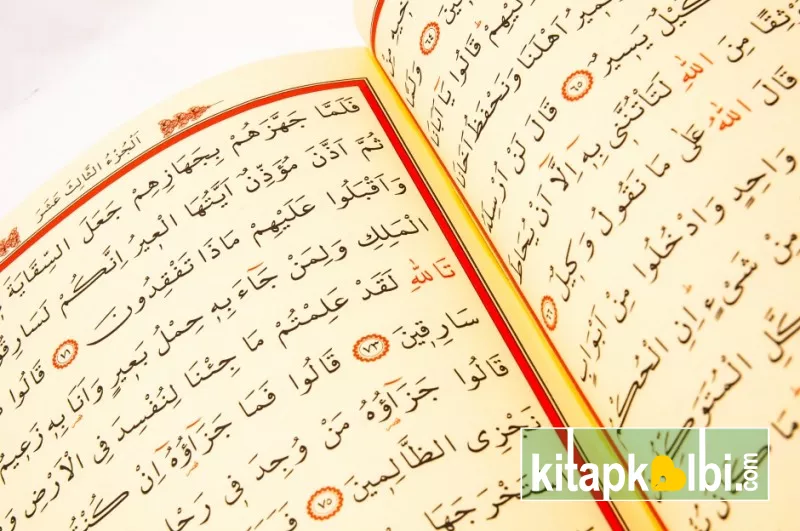 ٦٤ وَلَمَّا
اِلَيْهِمْ قَالُوا يَٓا اَبَانَا
نَمِيرُ اَهْلَنَا وَنَحْفَظُ اَخَانَا
كَيْلٌ يَسِيرٌ ٦٥ قَالَ لَنْ اُرْسِلَهُ
مَوْثِقًا مِنَ اللّٰهِ لَتَأْتُنَّنِى بِهِٓ اِلَّٓا اَنْ يُحَاطَ
قَالَ اللّٰهُ عَلٰى مَا نَقُولُ وَكِيلٌ ٦٦
وَاحِدٍ وَادْخُلُوا مِنْ اَبْوَابٍ
مِنْ شَىْءٍ اِنِ الْحُكْمُ
اَلْجُزْءُ الثَّالِثَ عَشَرَ
فَلَمَّا جَهَّزَهُمْ بِجَهَازِهِمْ جَعَلَ السِّقَايَةَ
ثُمَّ اَذَّنَ مُؤَذِّنٌ اَيَّتُهَا الْعِيرُ اِنَّكُمْ لَسَارِقُونَ
وَاَقْبَلُوا عَلَيْهِمْ مَاذَا تَفْقِدُونَ ٧١ قَالُوا
الْمَلِكِ وَلِمَنْ جَٓاءَ بِهِ حِمْلُ بَعِيرٍ وَاَنَا بِهِ زَعِيمٌ
تَاللّٰهِ لَقَدْ عَلِمْتُمْ مَا جِئْنَا لِنُفْسِدَ فِى الْاَرْضِ
سَارِقِينَ ٧٣ قَالُوا فَمَا جَزَٓاؤُهُٓ اِنْ كُنْتُمْ
قَالُوا جَزَٓاؤُهُ مَنْ وُجِدَ فِى رَحْلِهِ
نَجْزِى الظَّالِمِينَ ٧٥
kitapkalbi.com